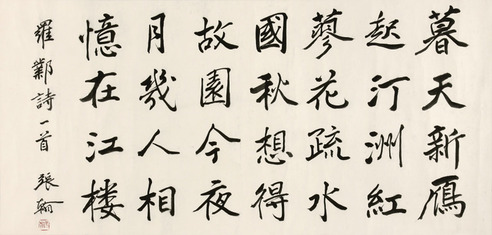 暮天新雁
起汀洲紅
蓼花疏水
國秋想得
故園今夜
月幾人相
憶在江楼
羅鄴詩一首 張翰